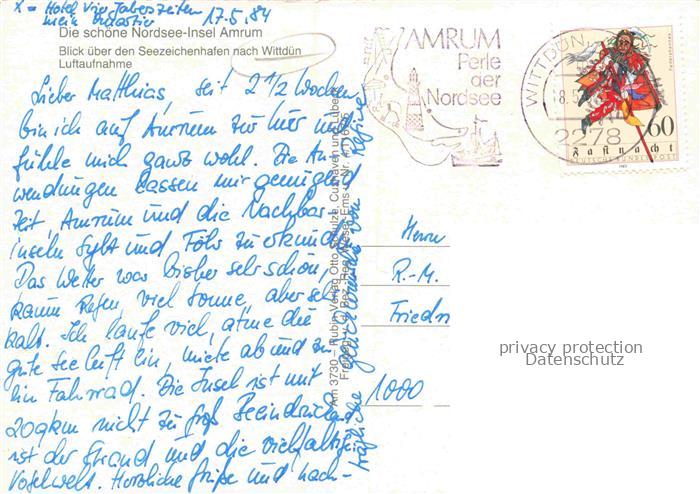 x = Hotel Vier Jahreszeiten
mein Quartier
17.5.84
Die schöne Nordsee-Insel Amrum
Blick über den Seezeichenhafen nach Wittdün
Luftaufnahme
Lieber Matthias, seit 2 1/2 Wochen
bin ich auf Amrum zur Kur und
fühle mich ganz wohl. Die An-
wendungen lassen mir genügend
Zeit, Amrum und die Nachbar-
inseln Sylt und Föhr zu erkunden.
Das Wetter war bisher sehr schön,
kaum Regen, viel Sonne, aber sehr
kalt. Ich laufe viel, atme die
gute Seeluft ein, miete ab und zu
ein Fahrrad. Die Insel ist mit
20qkm nicht zu groß. Beeindruckend
ist der Strand und die vielfältige
Vogelwelt. Herzliche Grüße und nach-
trägliche Glückwünsche von
Am 3730 – Rubin-Verlag Otto Schulze, Cuxhaven und Lübeck
Freigeg. d. d. Bez.-Reg. Weser-Ems
AMRUM
Perle
der
Nordsee
WITTDÜN
2278
60
Fastnacht
DEUTSCHE BUNDESPOST
1983
Herrn
R.-M.
Friedr
1000
privacy protection
Datenschutz